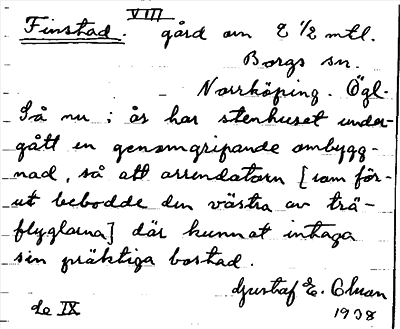 VIII
Finstad. gård om 2 1/2 mtl.
Borgs sn.
Norrköping. Ögl.
Så nu i år har stenhuset under-
gått en genomgripande ombygg-
nad, så att arrendatorn [som för-
ut bebodde den västra av trä-
flyglarna] där kunnat intaga
sin präktiga bostad.
Gustaf E.
de IX 1938